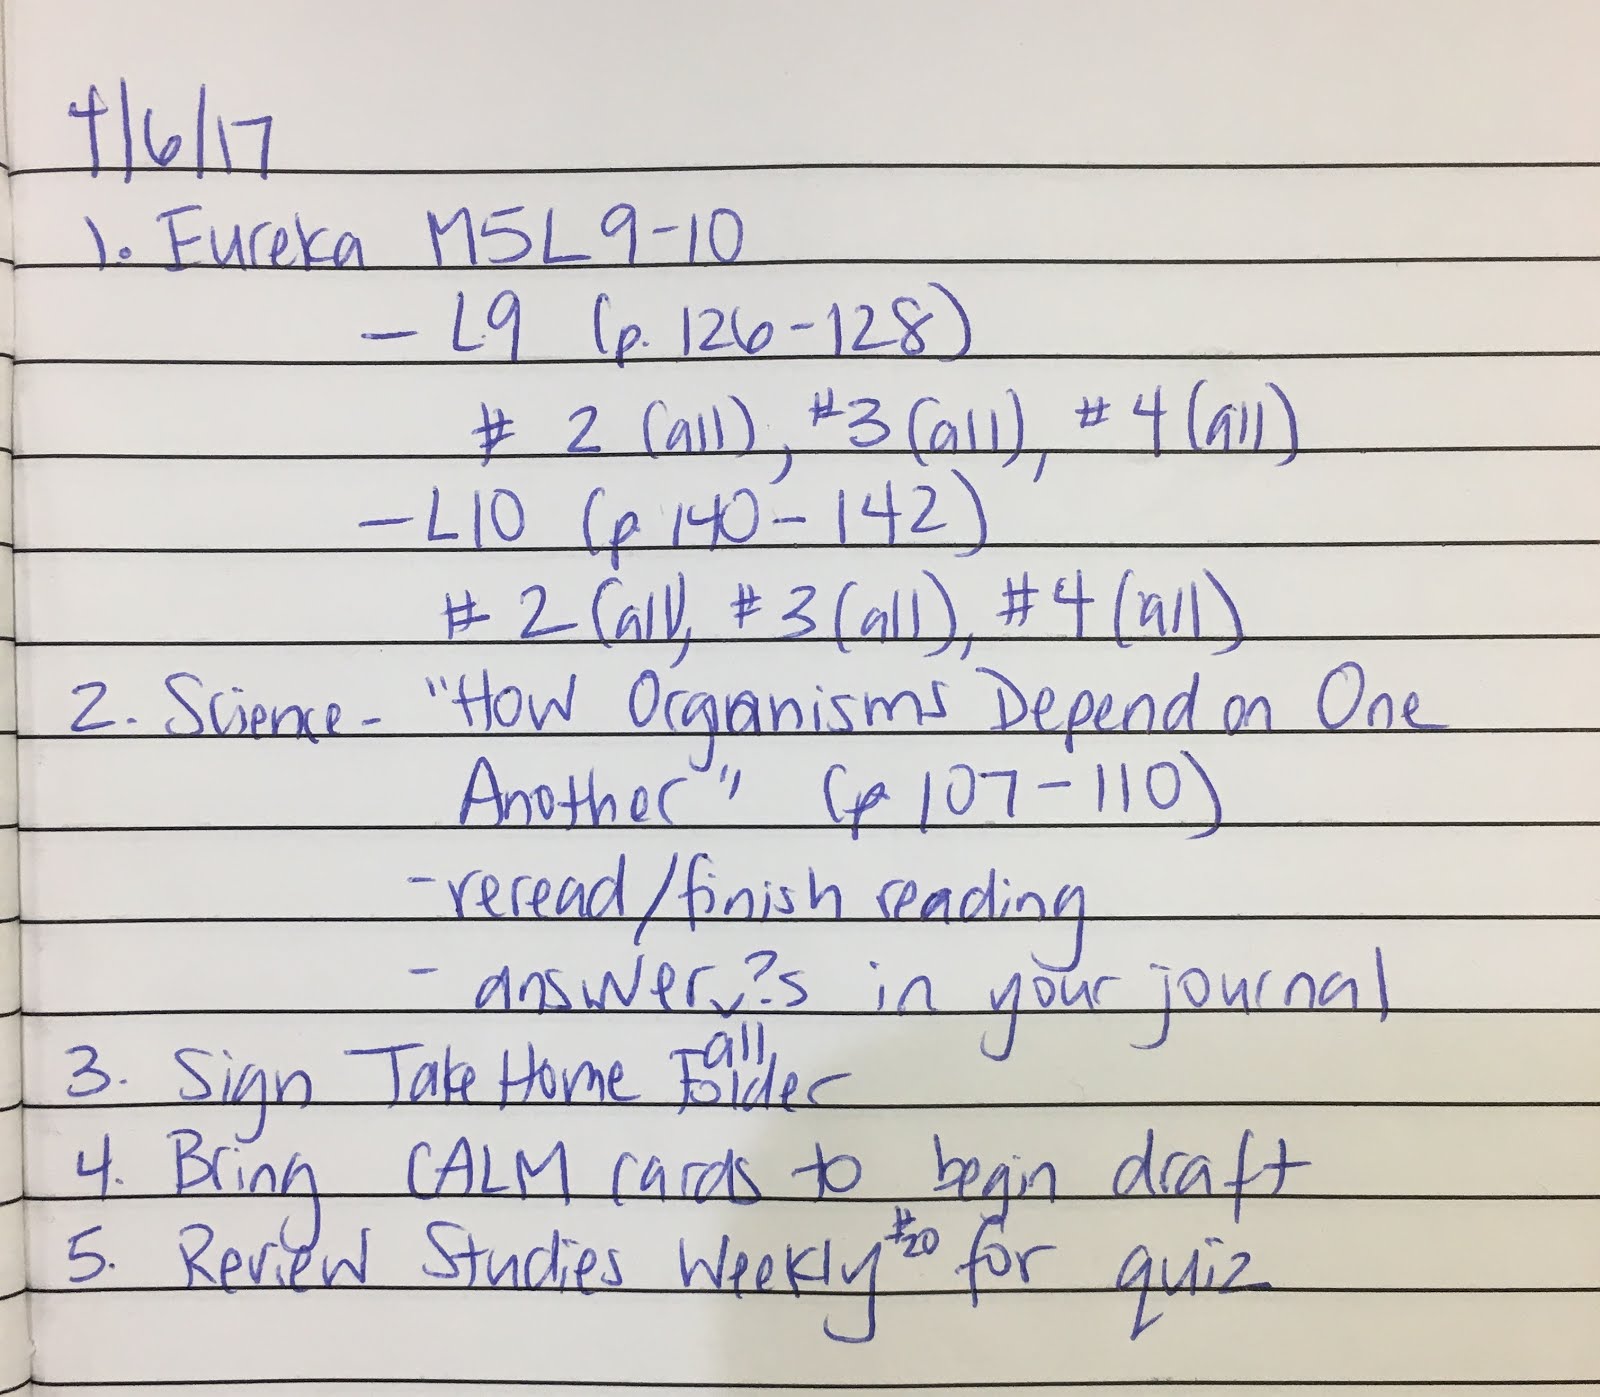 4/6/17
1. Eureka M5L9-10
- L9 (p. 126-128)
# 2 (all), #3 (all), #4 (all)
- L10 (p 140-142)
# 2 (all), #3 (all), #4 (all)
2. Science - "How Organisms Depend on One
Another" (p 107-110)
- reread/finish reading
- answer ?s in your journal
all
3. Sign Take Home Folder
4. Bring CALM cards to begin draft
5. Review Studies Weekly #20 for quiz